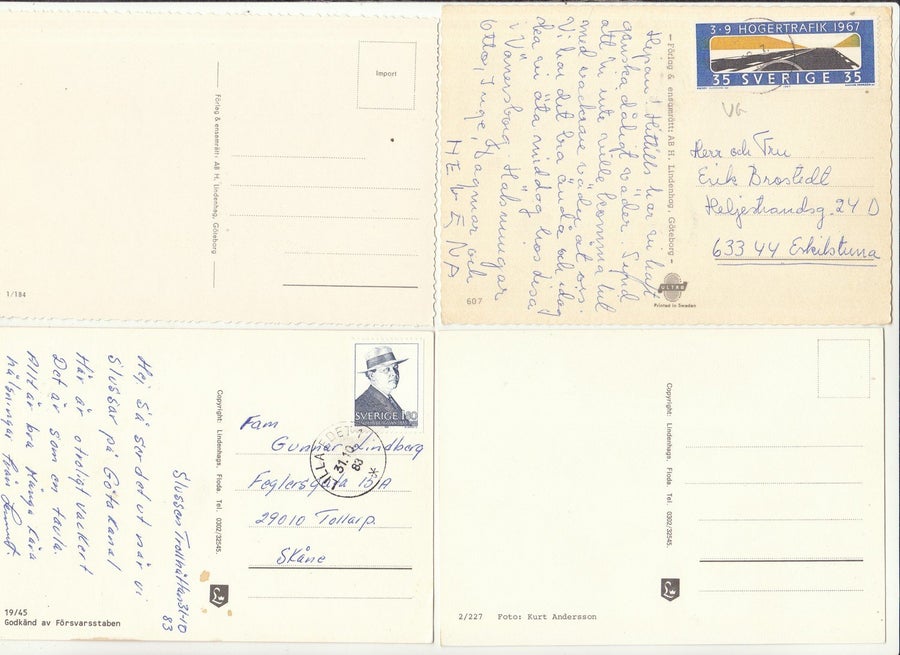 Import
Förlag & ensamrätt: AB H. Lindenhag, Göteborg
1/184
3·9 HÖGERTRAFIK 1967
35 SVERIGE 35
VG
Hejsan! Hittills har vi haft
ganska dåligt väder.
att inte ville komma
med vackrare väder åt oss
Vi har det bra ändå och idag
ska vi äta middag hos
i Vänersborg. Hälsningar
Otto, Inge, Dagmar och
HELENA
– Förlag & ensamrätt: AB H. Lindenhag, Göteborg –
Herr och Fru
Erik Brostedt
Heljestrandsg. 24 D
633 44 Eskilstuna
ULTRA
Printed in Sweden
607
Slussen Trollhättan 31-10
83
Hej Så ser det ut när vi
Slussar på Göta Kanal
Här är otroligt vackert
Det är som en tavla.
Allt är bra Många kära
hälsningar från
Copyright: Lindenhags, Floda. Tel. 0302/32545.
SVERIGE 180
LILLA EDET 1
31.10
83
Fam
Gunnar Lindberg
15A
29010 Tollarp.
Skåne
19/45
Godkänd av Försvarsstaben
Copyright: Lindenhags, Floda. Tel. 0302/32545.
2/227 Foto: Kurt Andersson